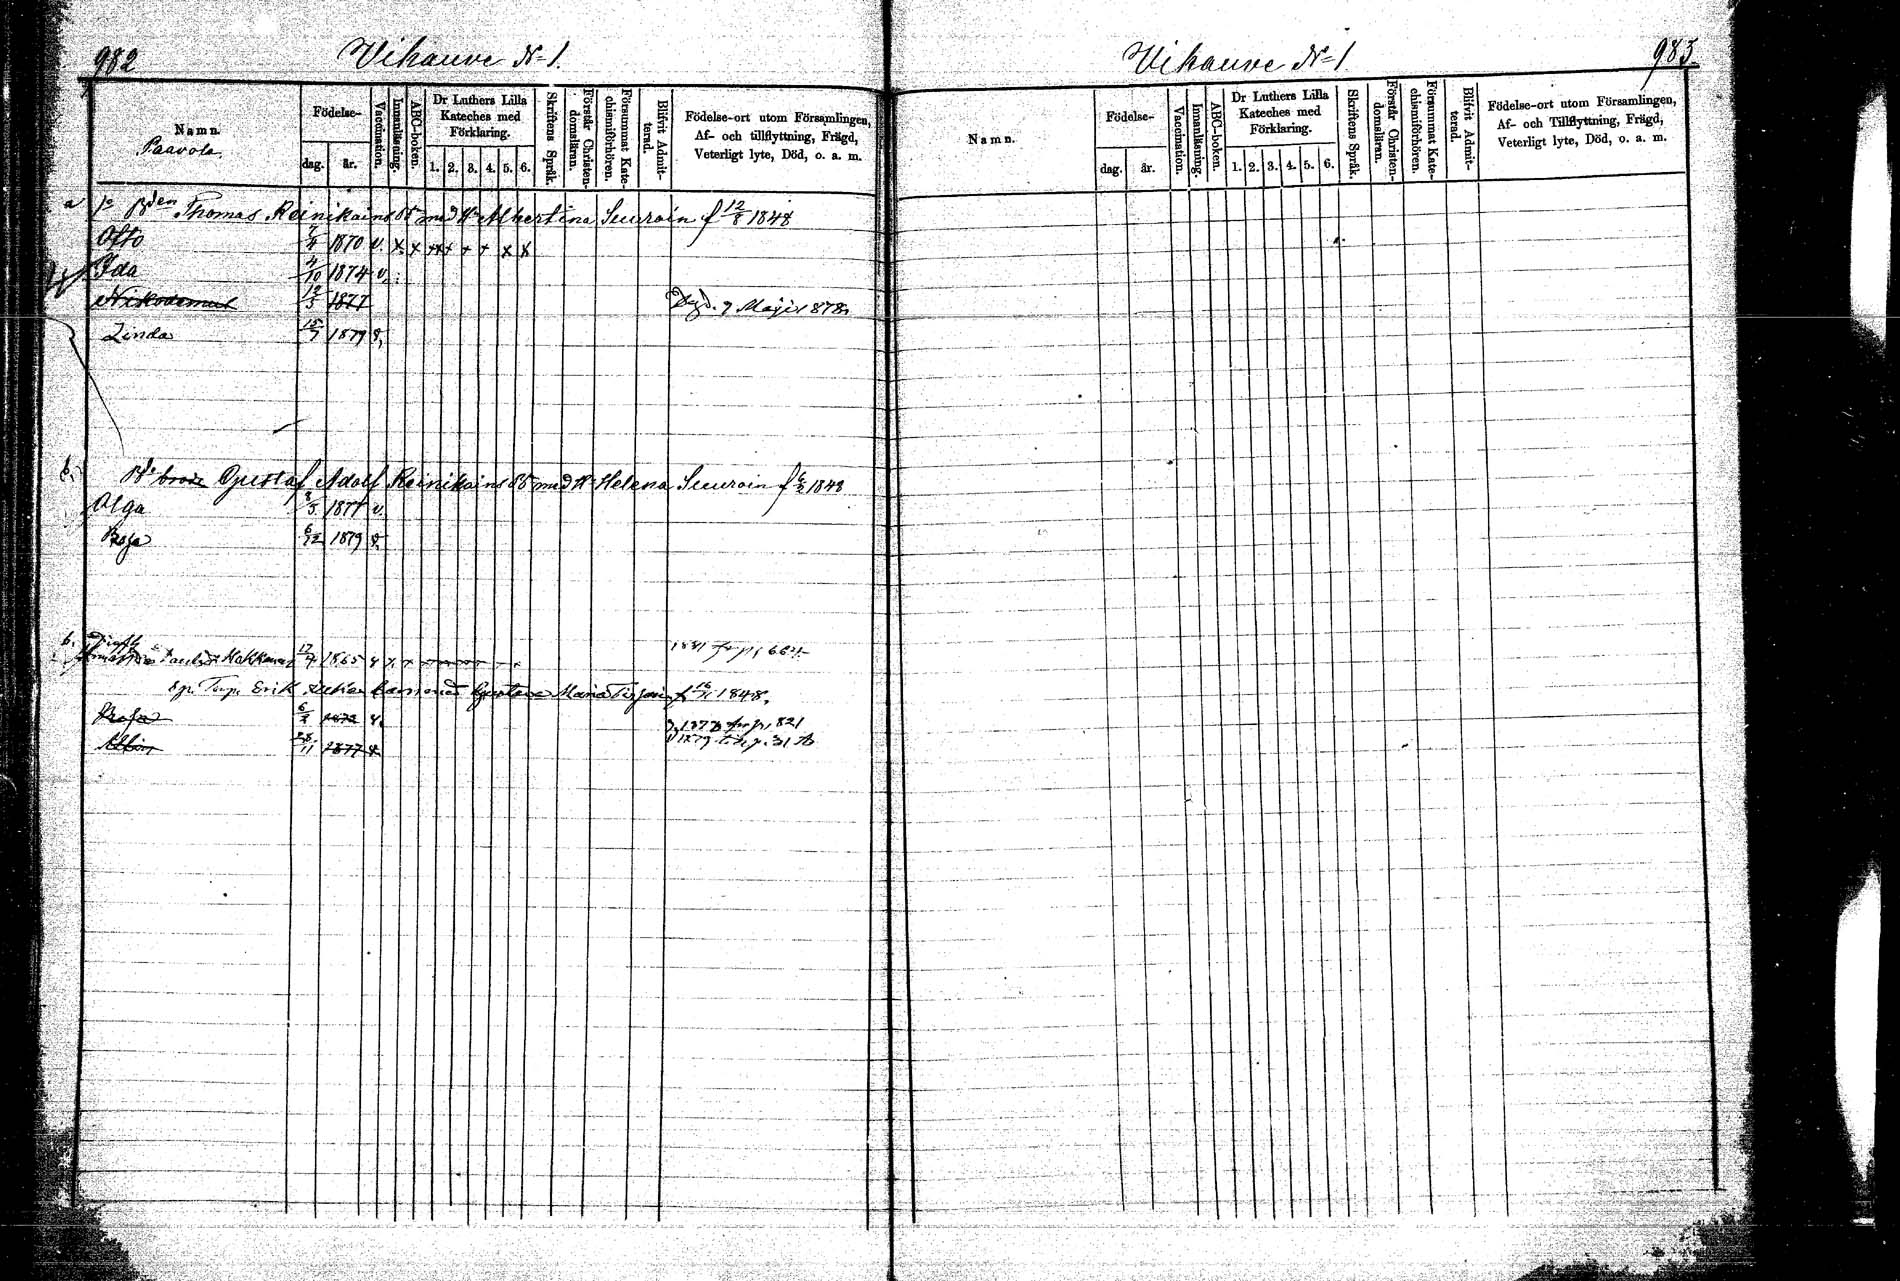 982
Vihauve № 1.
Namn.
Paavola.
Födelse-
dag.
år.
Vaccination.
Innanläsning.
ABC-boken.
Dr Luthers Lilla
Kateches med
Förklaring.
1. 2. 3. 4. 5. 6.
Skriftens Språk.
Förstår Christen-
domsläran.
Försummat Kate-
chismiförhören.
Blifvit Admit-
terad.
Födelse-ort utom Församlingen,
Af- och tillflyttning, Frägd,
Veterligt lyte, Död, o. a. m.
a Bden Thomas Reinikains med Hu Albertina Suuroin f 12/8 1848
Otto 7/4 1870 v. x x x x + + x x
Ida 4/10 1874 v.
Nikodemus 12/5 1877 Död. 7 Maji 1878
Linda 15/7 1879 v,
b. Gustaf Adolf Reinikains med Hu Helena Suuroin f 6/2 1848
Olga 3/5 1877 v.
Roja 6/12 1879 v.
b.
17/4 1865 v x x 1881 p. 664
Erik med Gustava Maria f 1848.
6/2 1872 v. 1878 fr p. 821
Albin 28/11 1877 v. 1879 t. p. 31
983.
Vihauve № 1
Namn.
Födelse-
dag.
år.
Vaccination.
Innanläsning.
ABC-boken.
Dr Luthers Lilla
Kateches med
Förklaring.
1. 2. 3. 4. 5. 6.
Skriftens Språk.
Förstår Christen-
domsläran.
Försummat Kate-
chismiförhören.
Blifvit Admit-
terad.
Födelse-ort utom Församlingen,
Af- och Tillflyttning, Frägd,
Veterligt lyte, Död, o. a. m.